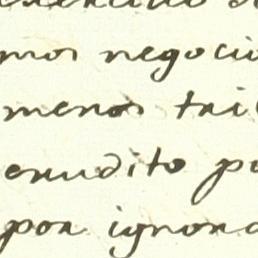 mos negocio
menos tri
erudito po
por ignora